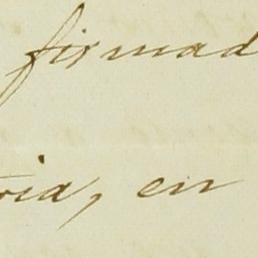 firmad
oria, en